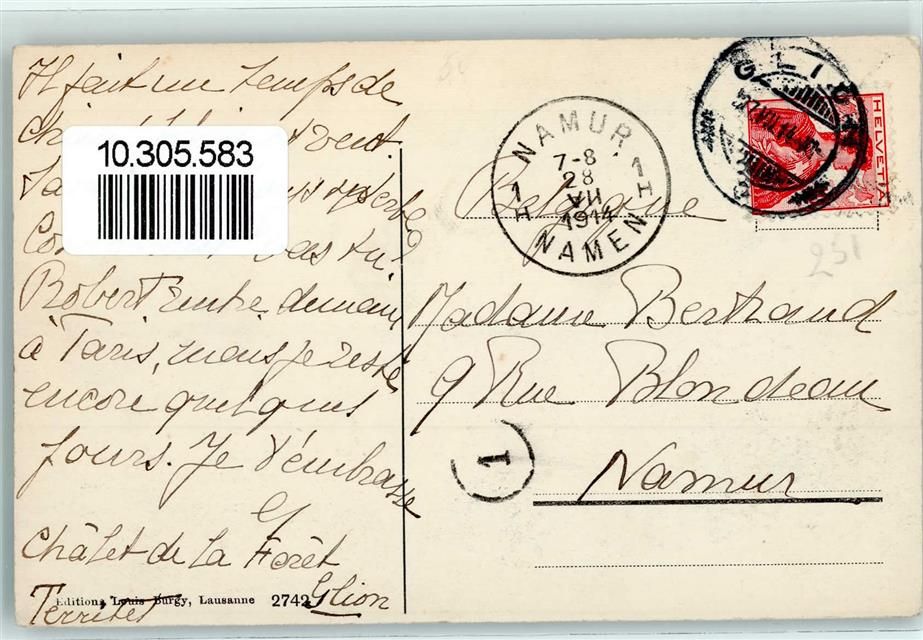 Il fait un temps de
10.305.583
Comment vas tu?
Robert rentre demain
à Paris, mais je reste
encore quelques
jours. Je t'embrasse
Châlet de la Forêt
Territet Glion
Editions Louis Burgy, Lausanne 2742
NAMUR 1H
7-8
28
VII
1914
1H NAMEN
GLION
HELVETIA
Belgique
251
Madame Bertrand
9 Rue Blondeau
Namur
1